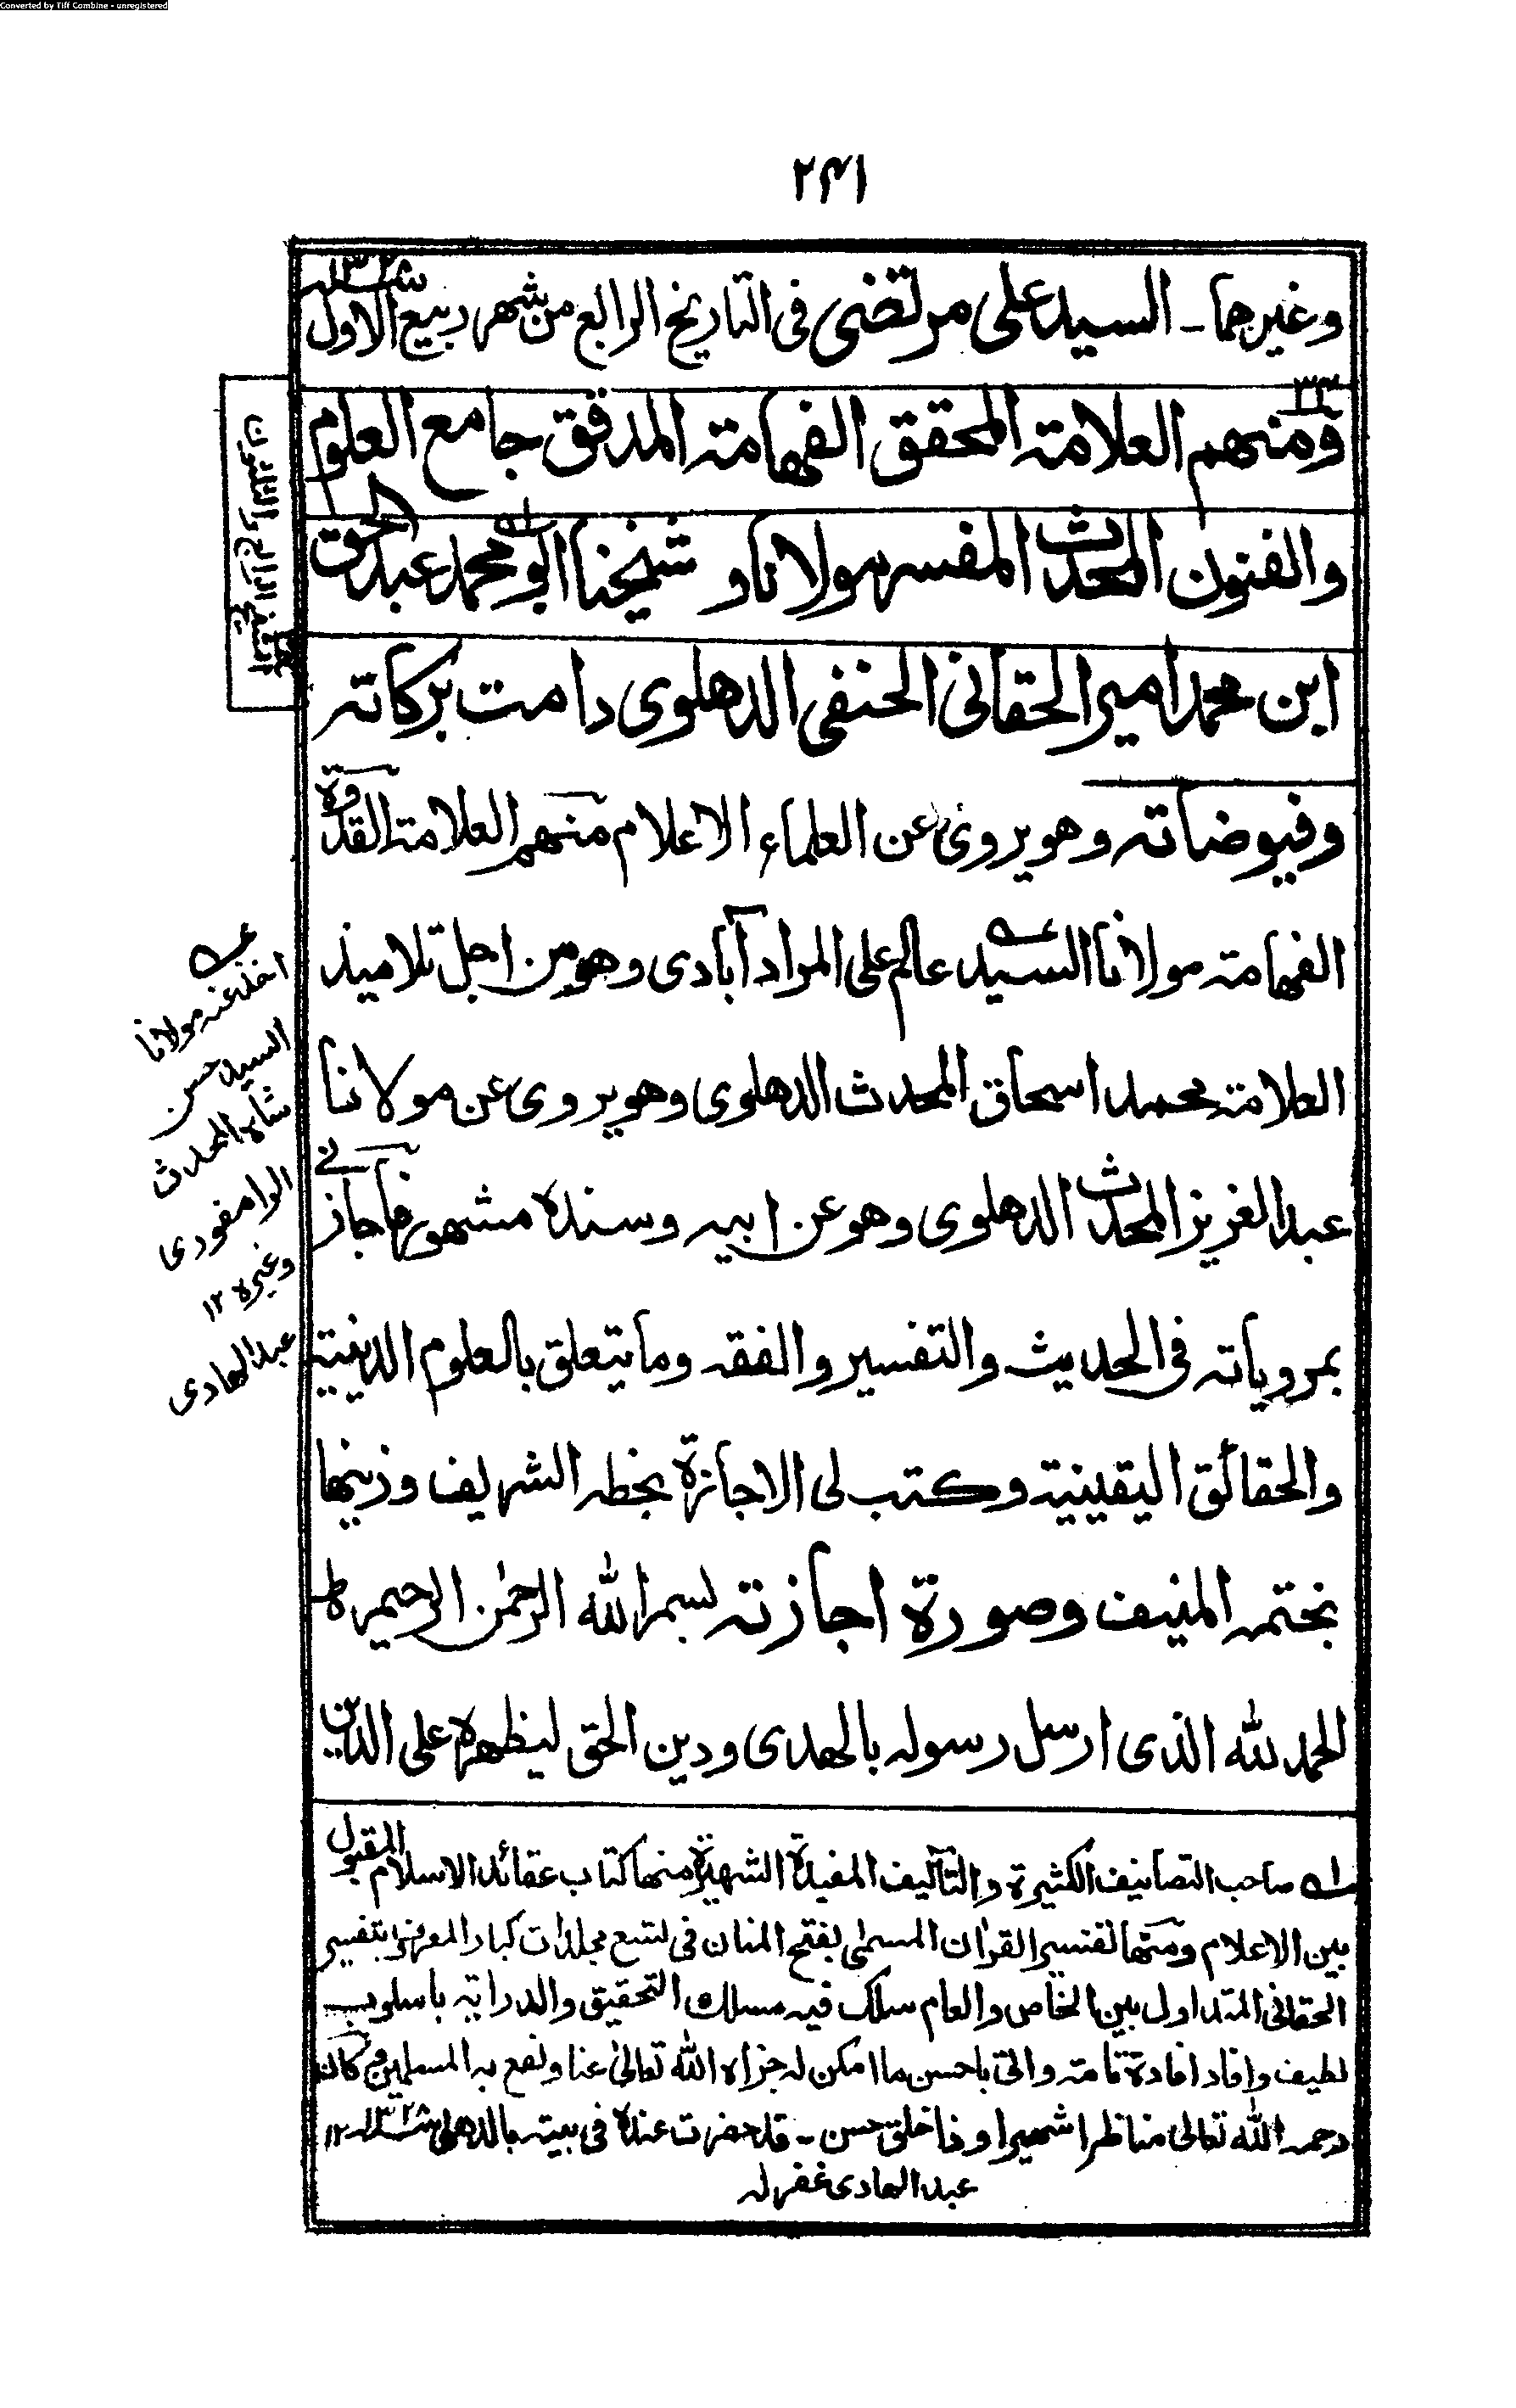 Converted by Tiff Combine - unregistered
٢٤١
وغيرهما ـ السيد على مرتضى فى التاريخ الرابع من شهر ربيع الاول ١٣٢٥
٣٤
ومنهم العلامة المحقق الفهامة المدقق جامع العلوم
والفنون المحدث المفسر مولانا و شيخنا ابو محمد عبد الحق
ابن محمد امير الحقانى الحنفى الدهلوى دامت بركاته
وفيوضاته وهو يروى عن العلماء الاعلام منهم العلامة القدوة
الفهامة مولانا السيد عالم على المراد آبادى وهو من اجل تلاميذ
العلامة محمد اسحاق المحدث الدهلوى وهو يروى عن مولانا
عبد العزيز المحدث الدهلوى وهو عن ابيه وسنده مشهور فاجازنى
بمروياته فى الحديث والتفسير والفقه وما يتعلق بالعلوم الدينية
والحقائق اليقينية وكتب لى الاجازة بخطه الشريف وزينها
بختمه المنيف وصورة اجازته بسم الله الرحمٰن الرحيم ط
الحمد لله الذى ارسل رسوله بالهدى ودين الحق ليظهره على الدين
الشيخ الرابع والثلثون
اخذ عنه مولانا
السيد حسن
شاه المحدث
الرامفورى
وغيره ١٢
عبد الهادى
له صاحب التصانيف الكثيرة والتآليف المفيدة الشهيرة منها كتاب عقائد الاسلام المقبول
بين الاعلام ومنها تفسير القراٰن المسمىٰ بفتح المنان فى تسع مجلدات كبار المعروف بتفسير
الحقانى المتداول بين الخاص والعام سلك فيه مسلك التحقيق والدراية باسلوب
لطيف وافاد افادة تامة واتى باحسن ما امكن له جزاه الله تعالىٰ عنا ونفع به المسلمين وكان
رحمه الله تعالى مناظرا شهيرا وذا خلق حسن ـ قد حضرت عنده فى بيته بالدهلى ١٣٢٨ ١٢
عبد الهادى غفر له